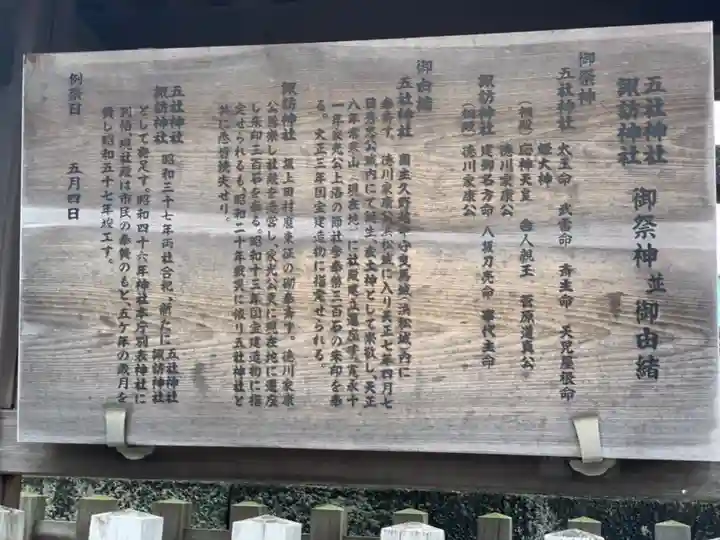 五社神社
諏訪神社 御祭神並御由緒
御祭神
五社神社 太玉命 武雷命 斎主命 天児屋根命
姫大神
(相殿) 応神天皇 舎人親王 菅原道真公
徳川家康公
諏訪神社 建御名方命 八坂刀売命 事代主命
(相殿) 徳川家康公
御由緒
五社神社 国主久野越中守曳馬城(浜松城)内に
奉斎す。徳川家康公浜松城に入り天正七年四月七
日秀忠公城内にて誕生、産土神として崇敬し、天正
八年常寒山(現在地)に社殿建立遷座す。寛永十
一年家光公上洛の節社参奉幣三百石の朱印を奉
る。大正三年国宝建造物に指定せられる。
諏訪神社 坂上田村麿東征の御奉斎す。徳川家康
公尊崇し社殿を造営し、家光公更に現在地に遷座
し朱印三百石を奉る。昭和十三年国宝建造物に指
定せられるも、昭和二十年戦災に依り五社神社と
共に悉皆焼失せり。
五社神社
諏訪神社 昭和三十七年両社合祀、新たに 五社神社
諏訪神社
として発足す。昭和四十六年神社本庁別表神社に
列格、現社殿は市民の奉賛のもと、五ケ年の歳月を
費し昭和五十七年竣工す。
例祭日 五月四日